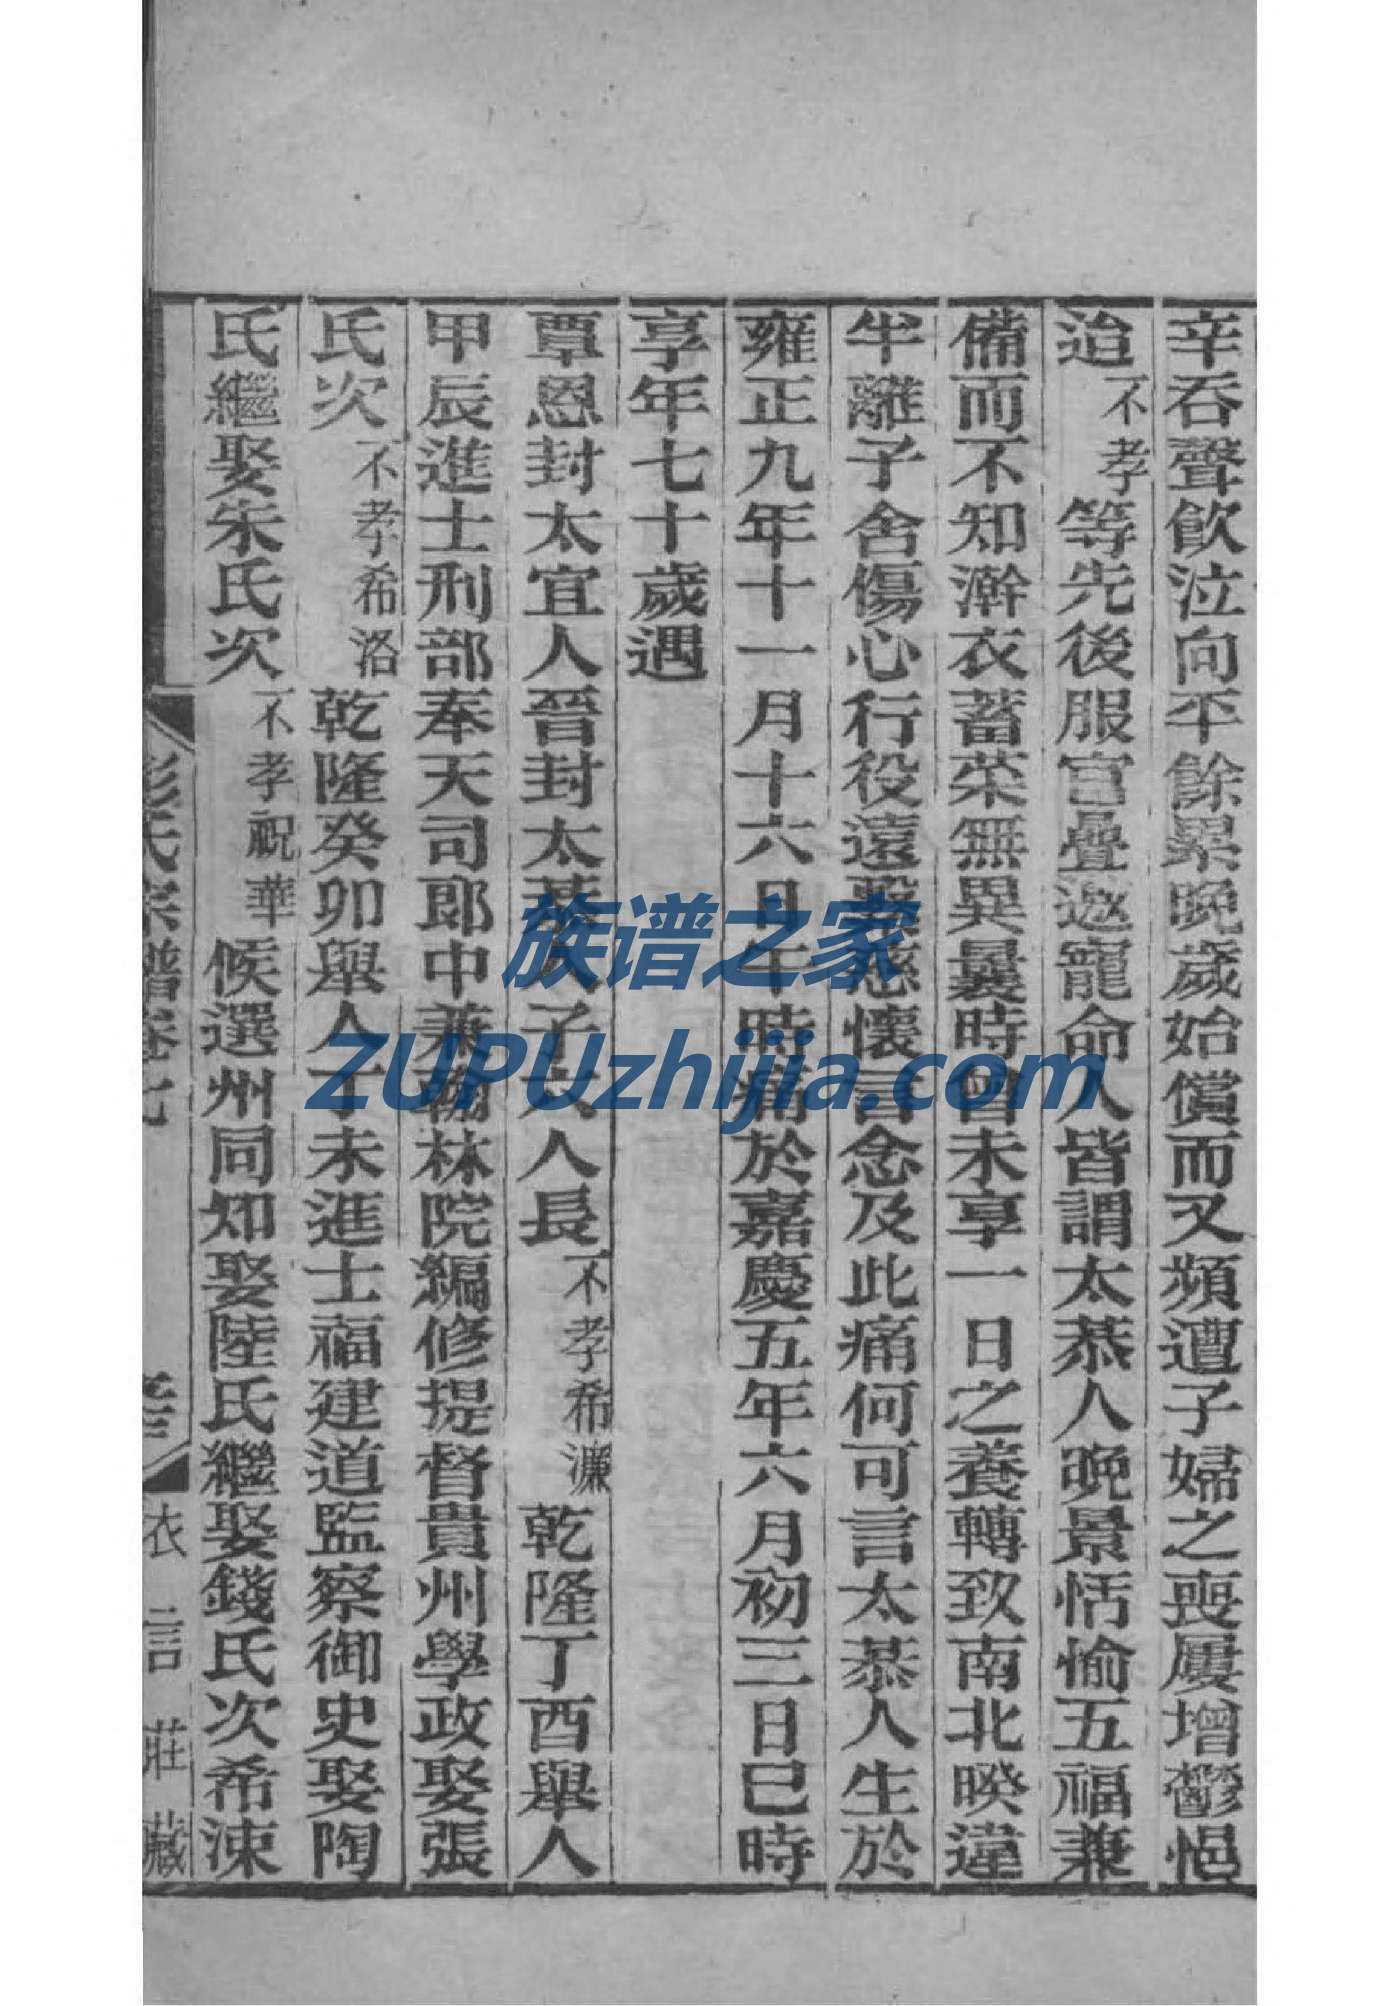 辛吞聲飲泣向平餘累晚歲始償而又頻遭子婦之喪屢增鬱悒
迨不孝等先後服官疊邀寵命人皆謂太恭人晚景恬愉五福兼
備而不知澣衣蓄菜無異曩時曾未享一日之養轉致南北暌違
半離子舍傷心行役遠慈懷言念及此痛何可言太恭人生於
雍正九年十一月十六日午時痛於嘉慶五年六月初三日巳時
享年七十歲遇
覃恩封太宜人晉封太恭人子六人長不孝希濂乾隆丁酉舉人
甲辰進士刑部奉天司郎中兼翰林院編修提督貴州學政娶張
氏次不孝希洛乾隆癸卯舉人丁未進士福建道監察御史娶陶
氏繼娶宋氏次不孝祝華候選州同知娶陸氏繼娶錢氏次希涑
彭氏宗譜卷七
衣言莊藏
族谱之家
ZUPUzhijia.com